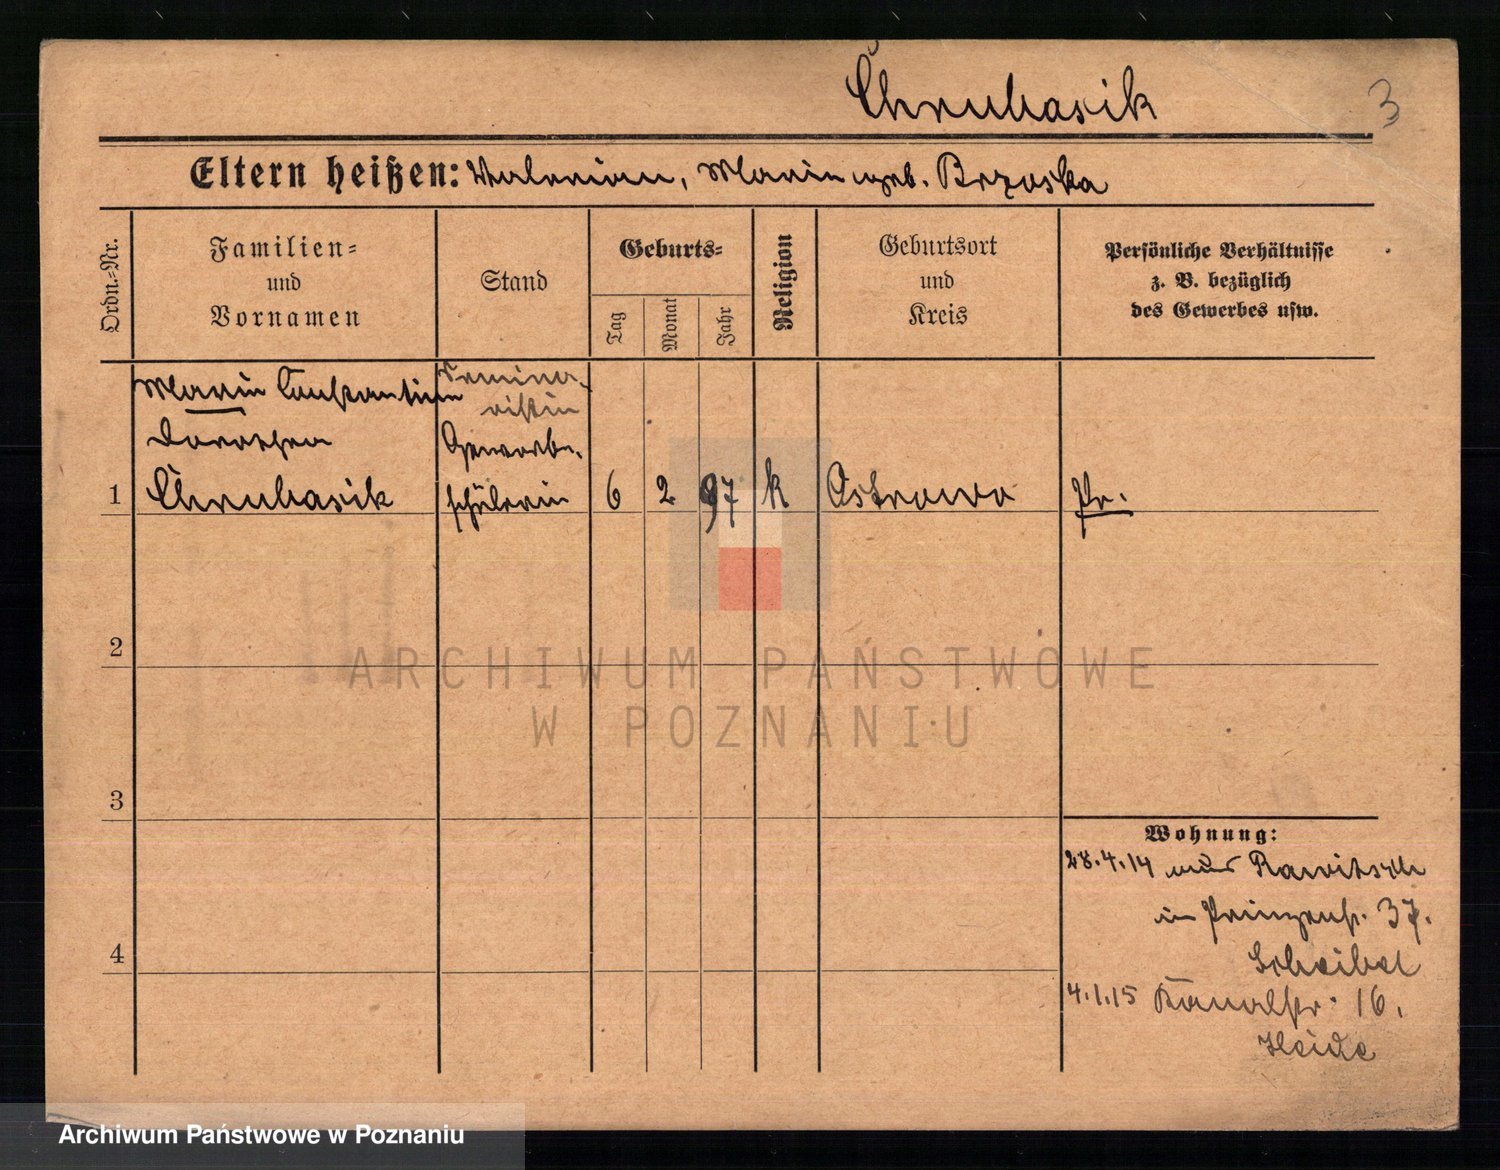 Chrubasik
3
Eltern heißen: Valerian, Marie geb. Brzoska
Ordn.=Nr.
Familien=
und
Vornamen
Stand
Geburts=
Tag
Monat
Jahr
Religion
Geburtsort
und
Kreis
Persönliche Verhältnisse
z. B. bezüglich
des Gewerbes usw.
Marie Constantine
Dorothea
1 Chrubasik
Semina-
ristin
Gewerbe-
schülerin
6 2 97 k Ostrowo Pr.
2
3
4
Wohnung:
28.4.14 aus Rawitsch
in Prinzenstr. 37.
Scheibel
4.1.15 Kanalstr. 16.
Heide
ARCHIWUM PAŃSTWOWE
W POZNANIU
Archiwum Państwowe w Poznaniu